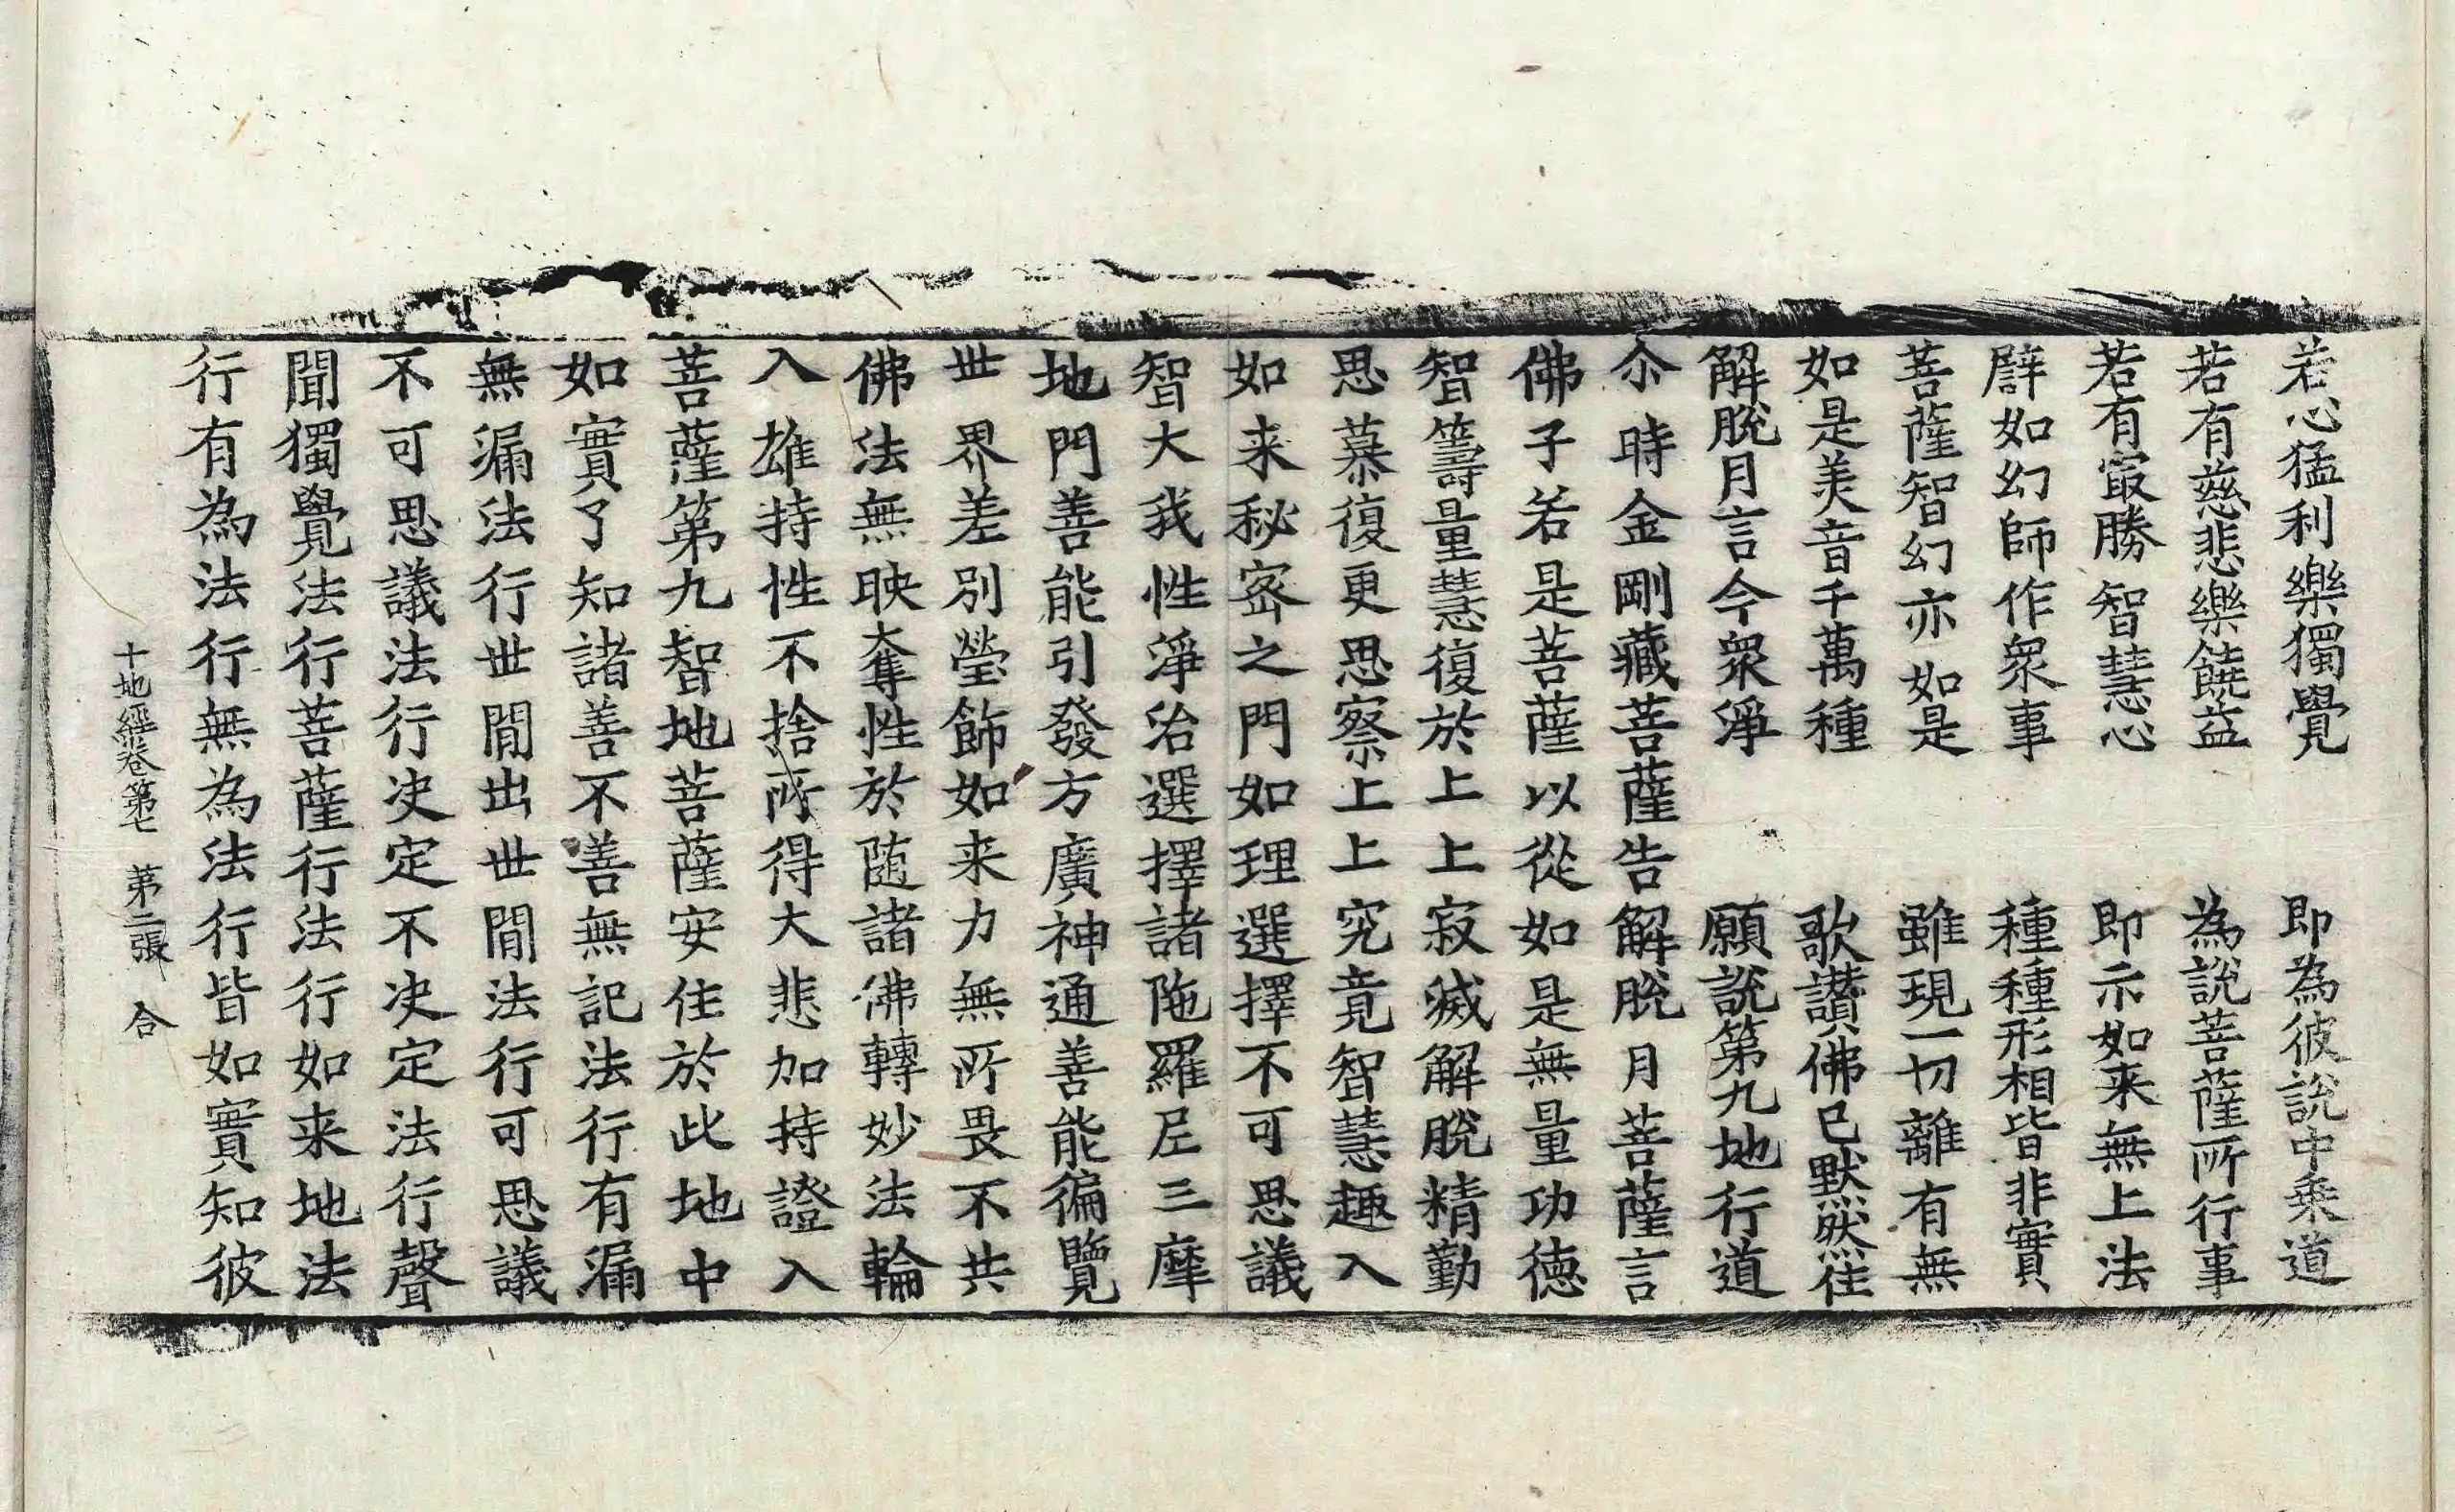 若心猛利樂獨覺　即為彼說中乘道
若有慈悲樂饒益　為說菩薩所行事
若有㝡勝智慧心　即示如来無上法
譬如幻師作衆事　種種形相皆非實
菩薩智幻亦如是　雖現一切離有無
如是美音千萬種　歌讃佛已默然住
解脫月言今衆淨　願說第九地行道
尒時金剛藏菩薩告解脫月菩薩言
佛子若是菩薩以從如是無量功德
智籌量慧復於上上寂滅解脫精勤
思慕復更思察上上究竟智慧趣入
如来秘密之門如理選擇不可思議
智大我性淨治選擇諸陁羅尼三摩
地門善能引發方廣神通善能徧覽
世界差別瑩飾如来力無所畏不共
佛法無映奪性於随諸佛轉妙法輪
入雄持性不捨所得大悲加持證入
菩薩第九智地菩薩安住於此地中
如實了知諸善不善無記法行有漏
無漏法行世間出世間法行可思議
不可思議法行决定不决定法行聲
聞獨覺法行菩薩行法行如来地法
行有為法行無為法行皆如實知彼
十地經卷第七　苐二張　合